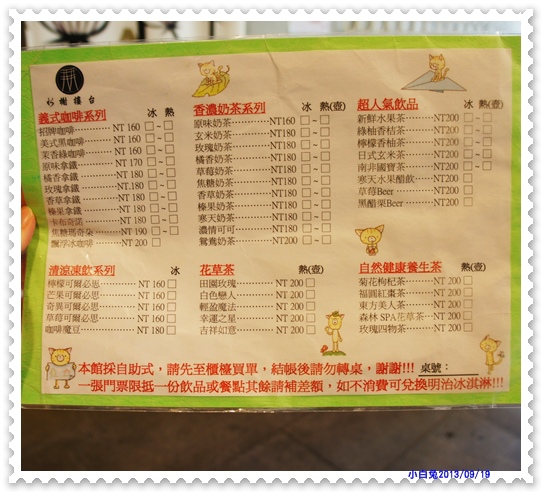 杉樹樓台
義式咖啡系列 冰 熱
招牌咖啡 NT 160
美式黑咖啡 NT 160
茉香綠咖啡 NT 160
原味拿鐵 NT 170
橘香拿鐵 NT 180
玫瑰拿鐵 NT 180
香草拿鐵 NT 180
榛果拿鐵 NT 180
卡布奇諾 NT 180
焦糖瑪奇朵 NT 190
飄浮冰咖啡 NT 200
香濃奶茶系列 冰 熱
原味奶茶 NT160
玄米奶茶 NT180
玫瑰奶茶 NT180
橘香奶茶 NT180
草莓奶茶 NT180
焦糖奶茶 NT180
香草奶茶 NT180
榛果奶茶 NT180
寒天奶茶 NT180
濃情可可 NT180
鴛鴦奶茶 NT180
超人氣飲品 冰 熱(壺)
新鮮水果茶 NT200
綠柚香桔茶 NT200
檸檬香柚茶 NT200
日式玄米茶 NT200
南非國寶茶 NT200
寒天水果醋飲 NT200
草莓Beer NT200
黑醋栗Beer NT200
清涼凍飲系列 冰
檸檬可爾必思 NT 160
芒果可爾必思 NT 160
奇異可爾必思 NT 160
草莓可爾必思 NT 160
咖啡魔豆 NT 180
花草茶 熱(壺)
田園玫瑰 NT 200
白色戀人 NT 200
輕盈魔法 NT 200
幸運之星 NT 200
吉祥如意 NT 200
自然健康養生茶 熱(壺)
菊花枸杞茶 NT 200
福圓紅棗茶 NT 200
東方美人茶 NT 200
森林 SPA花草茶 NT 200
玫瑰四物茶 NT 200
本館採自助式，請先至櫃檯買單，結帳後請勿轉桌，謝謝!!! 桌號：
一張門票限抵一份飲品或餐點其餘請補差額，如不消費可兌換明治冰淇淋!!!
小白兔2013/09/19